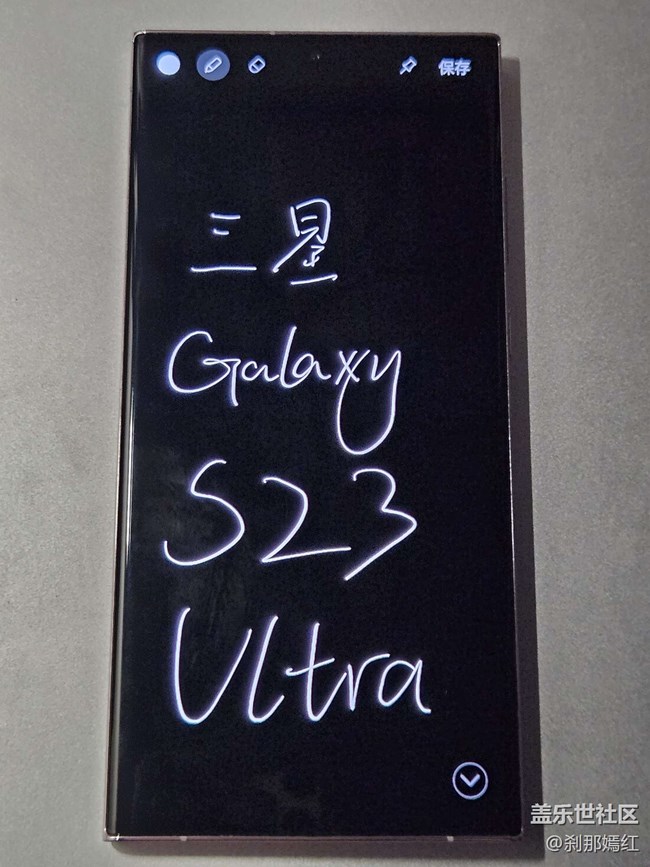 保存
三星
Galaxy
S23
Ultra
盖乐世社区
@刹那嫣红